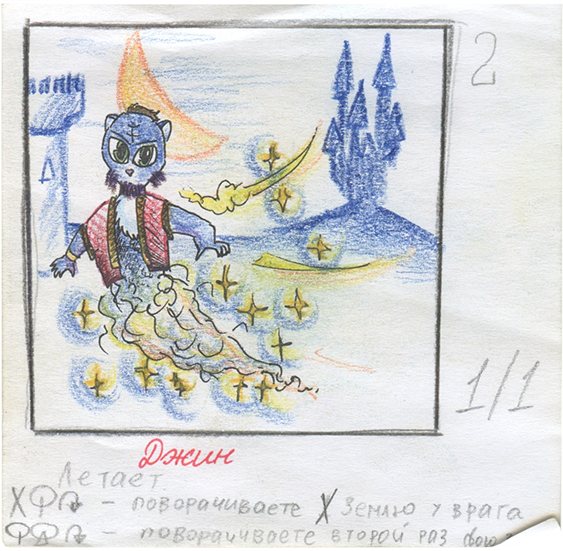 2
1/1
Джин
Летает
X – поворачиваете X Землю у врага
– поворачиваете второй раз свою